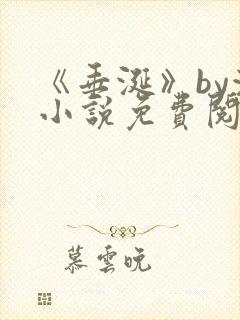 《垂涎》by
小説免費閱
慕雲晚